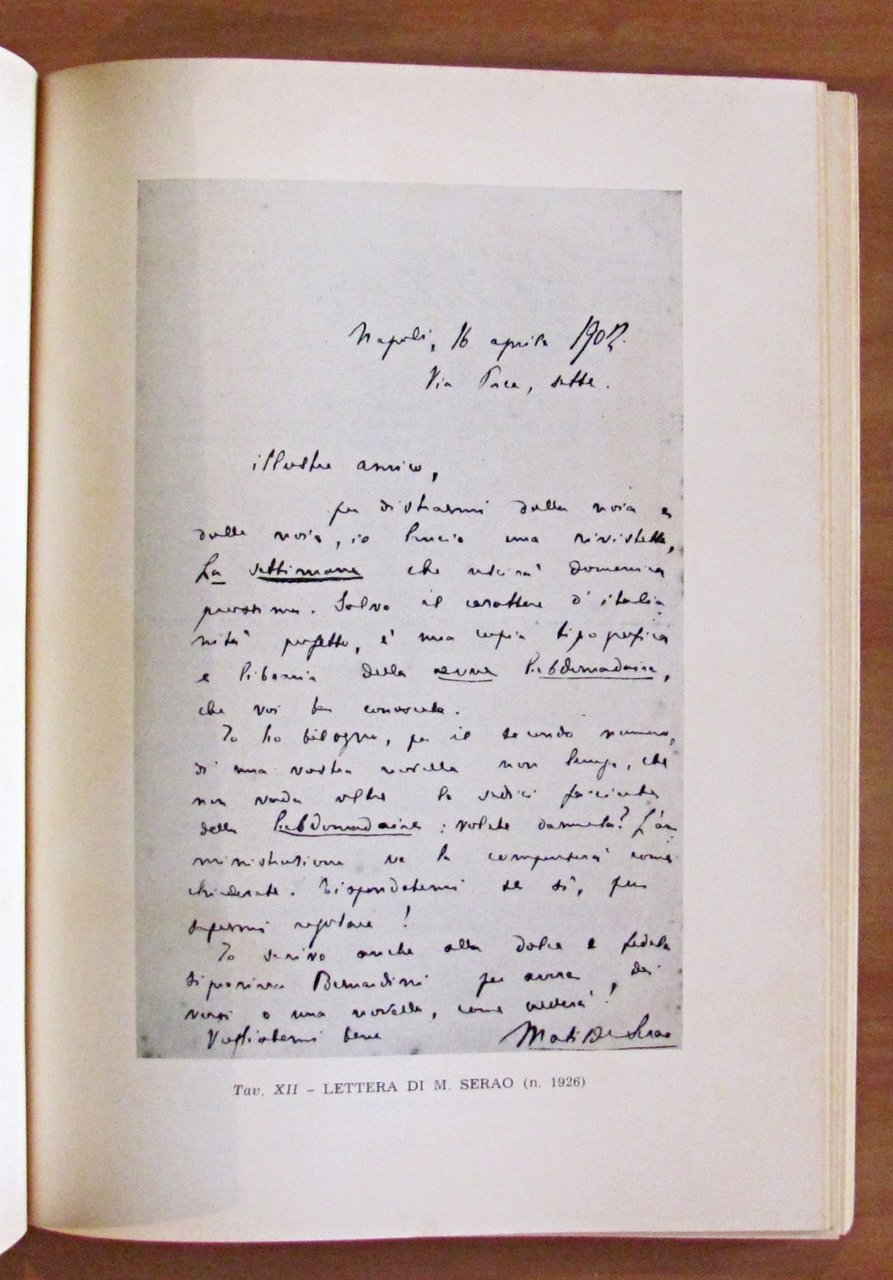 Napoli, 16 aprile 1902.
Via Pace, sette.
illustre amico,
per distrarmi dalla noia e
dalle noia, io lancio una rivistetta,
La settimana che uscirà domenica
prossima. Salvo il carattere d'italia
nità perfetto, è una copia tipografica
e libraria della revue hebdomadaire,
che voi ben conoscete.
Io ho bisogno, per il secondo numero,
di una vostra novella non lunga, che
non vada oltre le sedici facciate
della hebdomadaire: volete darmela? L'am
ministrazione ve la compenserà come
chiederete. Rispondetemi se sì, per
sapermi regolare!
Io scrivo anche alla dolce e fedele
signorina Bernardini per avere, dei
versi o una novella, come crederà!
Vogliatemi bene
Matilde Serao
Tav. XII – LETTERA DI M. SERAO (n. 1926)